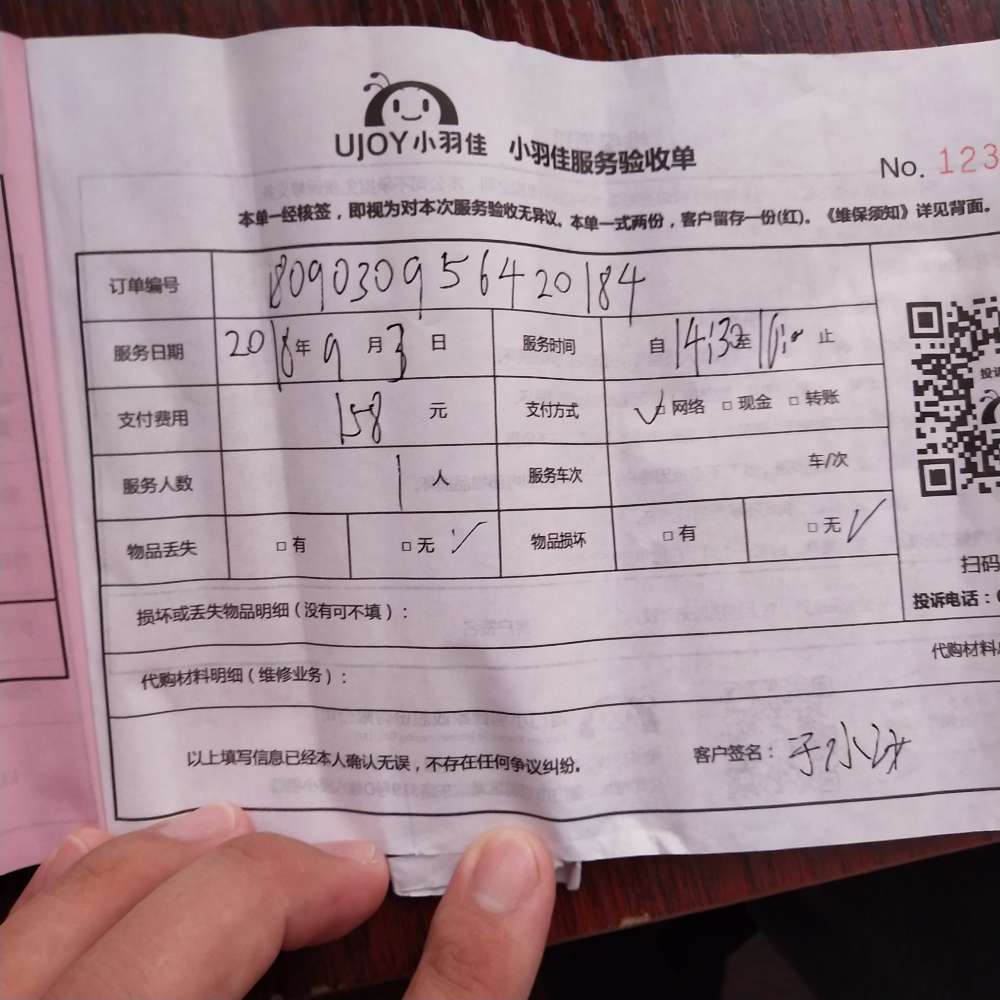 UJOY小羽佳 小羽佳服务验收单
No. 123
本单一经核签，即视为对本次服务验收无异议。本单一式两份，客户留存一份(红)。《维保须知》详见背面。
订单编号 1809030956420184
服务日期 2018年9月3日 服务时间 自14:30至16:00止
支付费用 158元 支付方式 ✓□网络 □现金 □转账
服务人数 1人 服务车次 车/次
物品丢失 □有 □无 ✓ 物品损坏 □有 □无 ✓
损坏或丢失物品明细（没有可不填）：
代购材料明细（维修业务）：
代购材料
以上填写信息已经本人确认无误，不存在任何争议纠纷。
客户签名：
投诉
扫码
投诉电话：